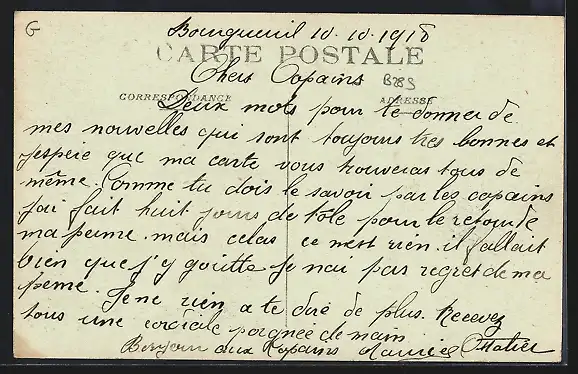 G
Bourgueuil 10.10.1918
CARTE POSTALE
Chers Copains B789
CORRESPONDANCE ADRESSE
Deux mots pour te donner de
mes nouvelles qui sont toujours tres bonnes et
j'espère que ma carte vous trouveras tous de
même. Comme tu dois le savoir par les copains
j'ai fait huit jours de tôle pour le retour de
ma perme. mais celas ce n'est rien. il fallait
bien que j'y goutte je nai pas regret de ma
perme. Je ne rien a te dire de plus. Recevez
tous une cordiale poignée de main
Bonjour aux Copains Maurice